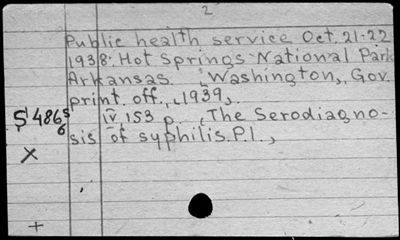 2
Public health service Oct. 21-22
1938. Hot Springs National Park
Arkansas. Washington, Gov.
print. off., 1939,
S 486 iv, 153 p. (The Serodiagno-
sis of syphilis. P.1.,
X
+